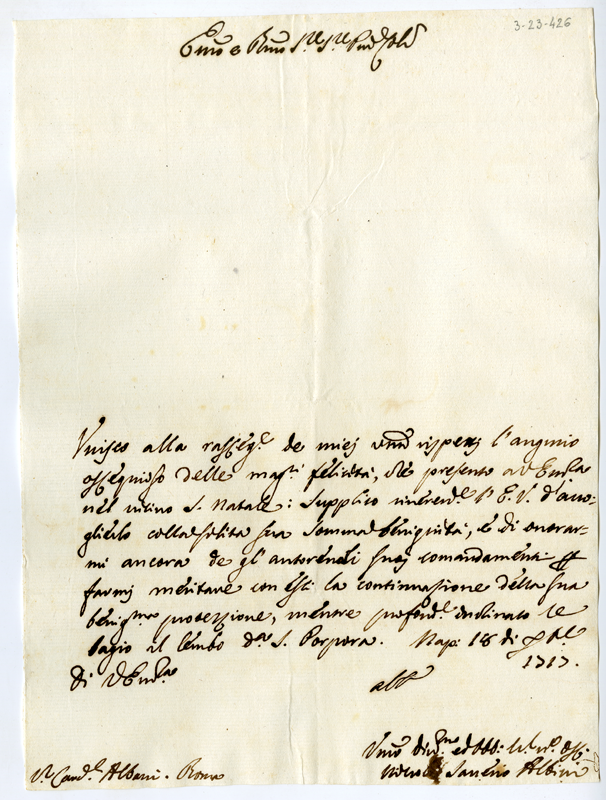 3-23-426
Emo e Rmo Sre Sre Pne Colmo
Unisco alla rassegne de miei umi rispetti l'augurio
ossequioso delle magri felicità, che presento ad Emza
nel vicino S. Natale: Supplico riverente l'E. V. d'acco-
glierlo colla solita sua somma benignità, e di onorar-
mi ancora de gl'autorevoli suoi comandamenti
farmi meritare con essi la continuazione della sua
benigma protezzione, mentre profonde inclinato le
bagio il lembo della S. Porpora. Nap: 18 di Xbre
1717.
Di V Emza
Umo divmo ed obb:
Saverio Albini
Sr Cardl Albani. Roma